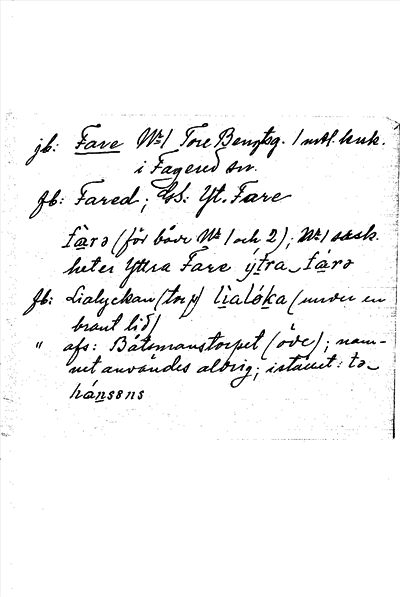 jb: Fare Nr 1 Tore Bengtsg. 1 mtl. kuk.
i Fagered sn.
Jb: Fared; GS: Yt. Fare
fàrə (för både Nr 1 och 2); Nr 1 särsk.
heter Yttra Fare ýtra fárə
Jb: Lialyckan (torp) lìalóka (under en
brant lid)
" afs: Båtsmanstorpet (öde); nam-
net användes aldrig; istället: tə
hánsens